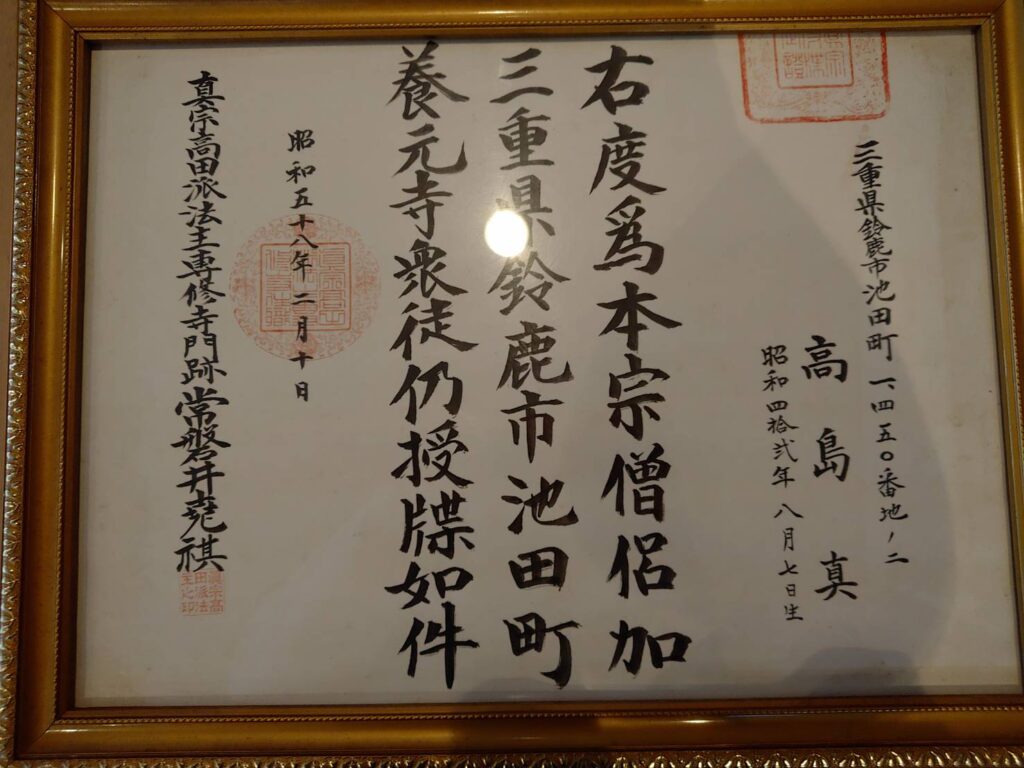 三重県鈴鹿市池田町一、四五〇番地ノ二
高島真
昭和四拾弐年八月七日生
右度爲本宗僧侶加
三重県鈴鹿市池田町
養元寺衆徒仍授牒如件
昭和五十八年二月十日
真宗高田派法主専修寺門跡常磐井堯祺
真宗高
田派法
主之印